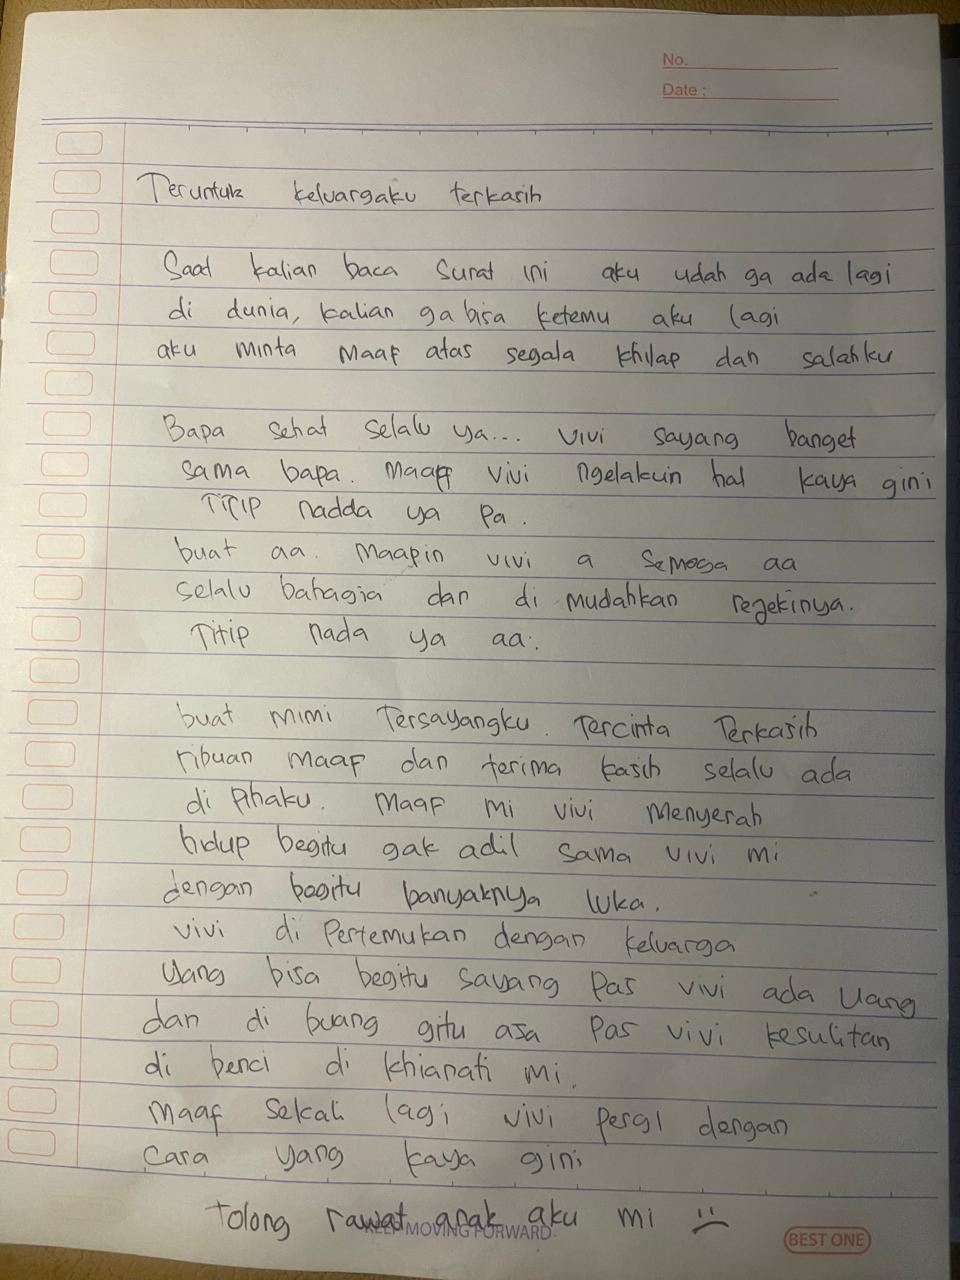 No.
Date :
Teruntuk keluargaku terkasih
Saat kalian baca surat ini aku udah ga ada lagi
di dunia, kalian ga bisa ketemu aku lagi
aku minta maaf atas segala khilap dan salahku
Bapa sehat selalu ya... vivi sayang banget
sama bapa. Maaf vivi ngelakuin hal kaya gini
TITIP nadda ya Pa.
buat aa. Maapin vivi a semoga aa
selalu bahagia dan di mudahkan rezekinya.
Titip nada ya aa.
buat mimi Tersayangku. Tercinta Terkasih
ribuan maaf dan terima kasih selalu ada
di Pihaku. Maaf mi vivi menyerah
hidup begitu gak adil sama vivi mi
dengan begitu banyaknya luka.
vivi di Pertemukan dengan keluarga
yang bisa begitu sayang Pas vivi ada uang
dan di buang gitu asa Pas vivi kesulitan
di benci di khianati mi.
Maaf sekali lagi vivi pergi dengan
cara yang kaya gini
tolong rawat anak aku mi :(
KEEP MOVING FORWARD
BEST ONE